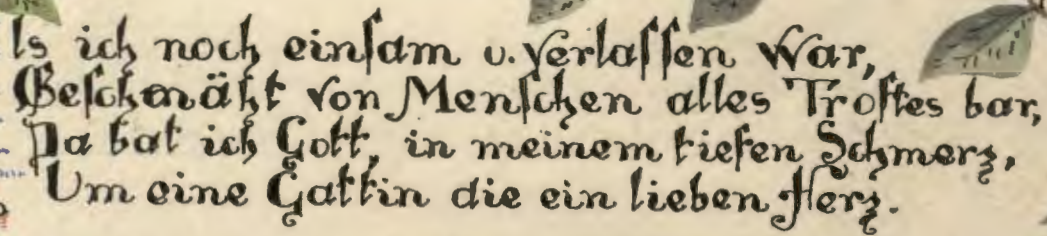 ls ich noch einſam u. verlaſſen war,
Geſchmäht von Menſchen alles Troſtes bar,
Da bat ich Gott, in meinem tiefen Schmerz,
Um eine Gattin die ein lieben Herz.